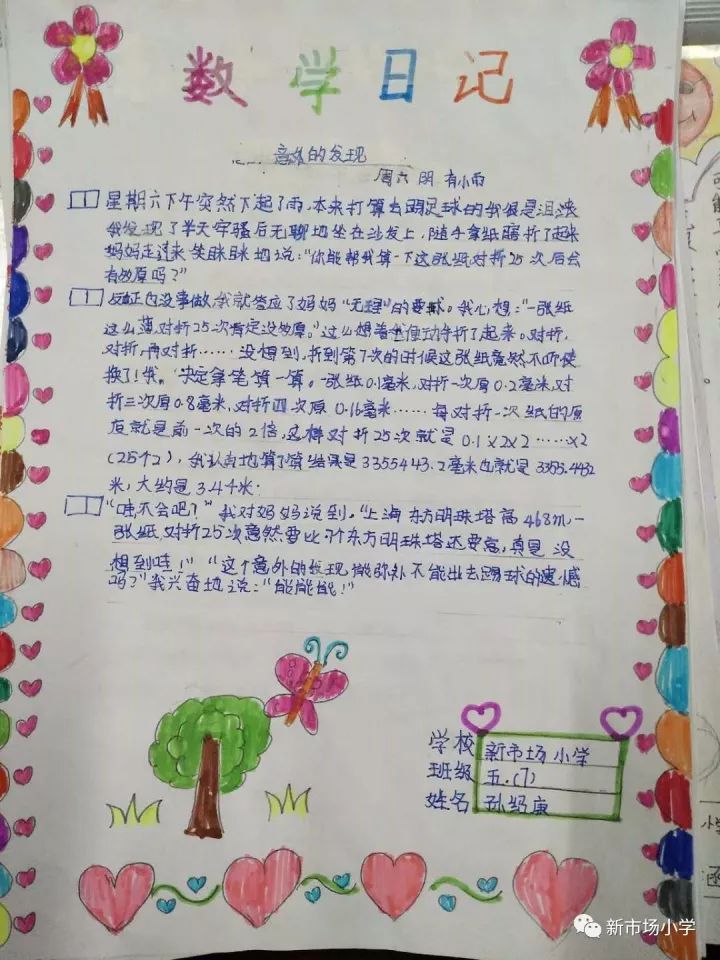 数学日记
意外的发现
周六 阴 有小雨
星期六下午突然下起了雨,本来打算去踢足球的我很是沮丧
我发现了半天牢骚后无聊地坐在沙发上,随手拿纸瞎折了起来
妈妈走过来笑眯眯地说:“你能帮我算一下这张纸对折25次后会
有多厚吗?”
反正也没事做,我就答应了妈妈“无理”的要求。我心想:“一张纸
这么薄,对折25次肯定没多厚。”这么想着我便动手折了起来。对折,
对折,再对折……没想到,折到第7次的时候这张纸竟然不听使
换了!我,决定拿笔算一算。一张纸0.1毫米,对折一次厚0.2毫米,对
折三次厚0.8毫米,对折四次厚0.16毫米……每对折一次纸的厚
度就是前一次的2倍,这样对折25次就是0.1×2×2……×2
(25个2),我认真地算了算结果是3355443.2毫米也就是3355.4432
米,大约是3.4千米.
“哇不会吧?”我对妈妈说到。“上海东方明珠塔高468m,一
张纸,对折25次竟然要比7个东方明珠塔还要高,真是没
想到哇!”“这个意外的发现能弥补不能出去踢球的遗憾
吗?”我兴奋地说:“能能能!”
学校 新市场小学
班级 五.(7)
姓名 孙绍康
新市场小学